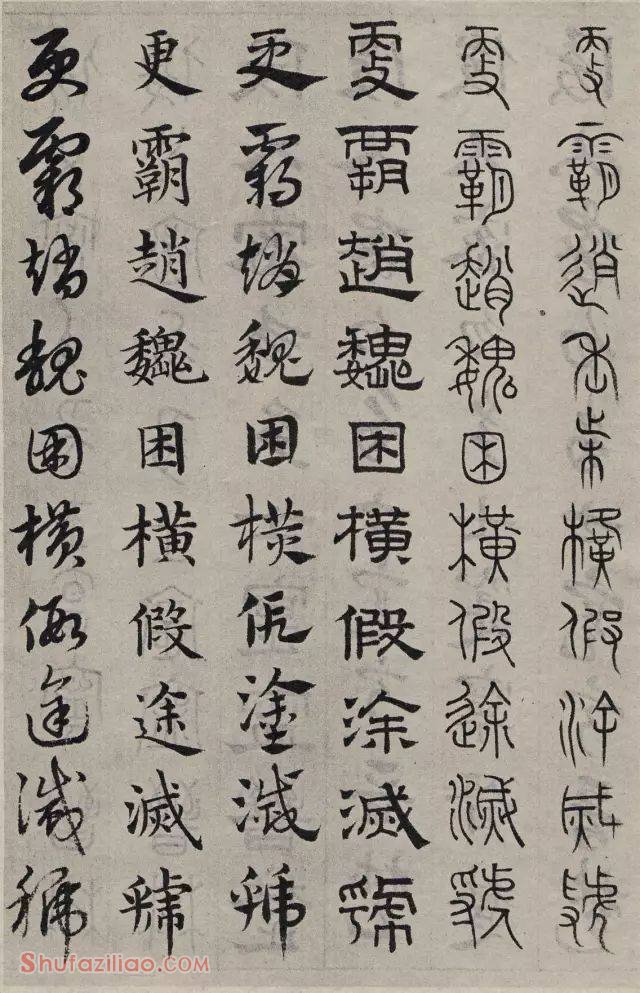 更霸趙魏困橫假途滅虢
更霸趙魏困橫假涂滅虢
更霸趙魏困橫假涂滅虢
更霸趙魏困橫假塗滅虢
更霸趙魏困橫假途滅虢
更霸趙魏困橫假途滅虢
Shufaziliao.COM